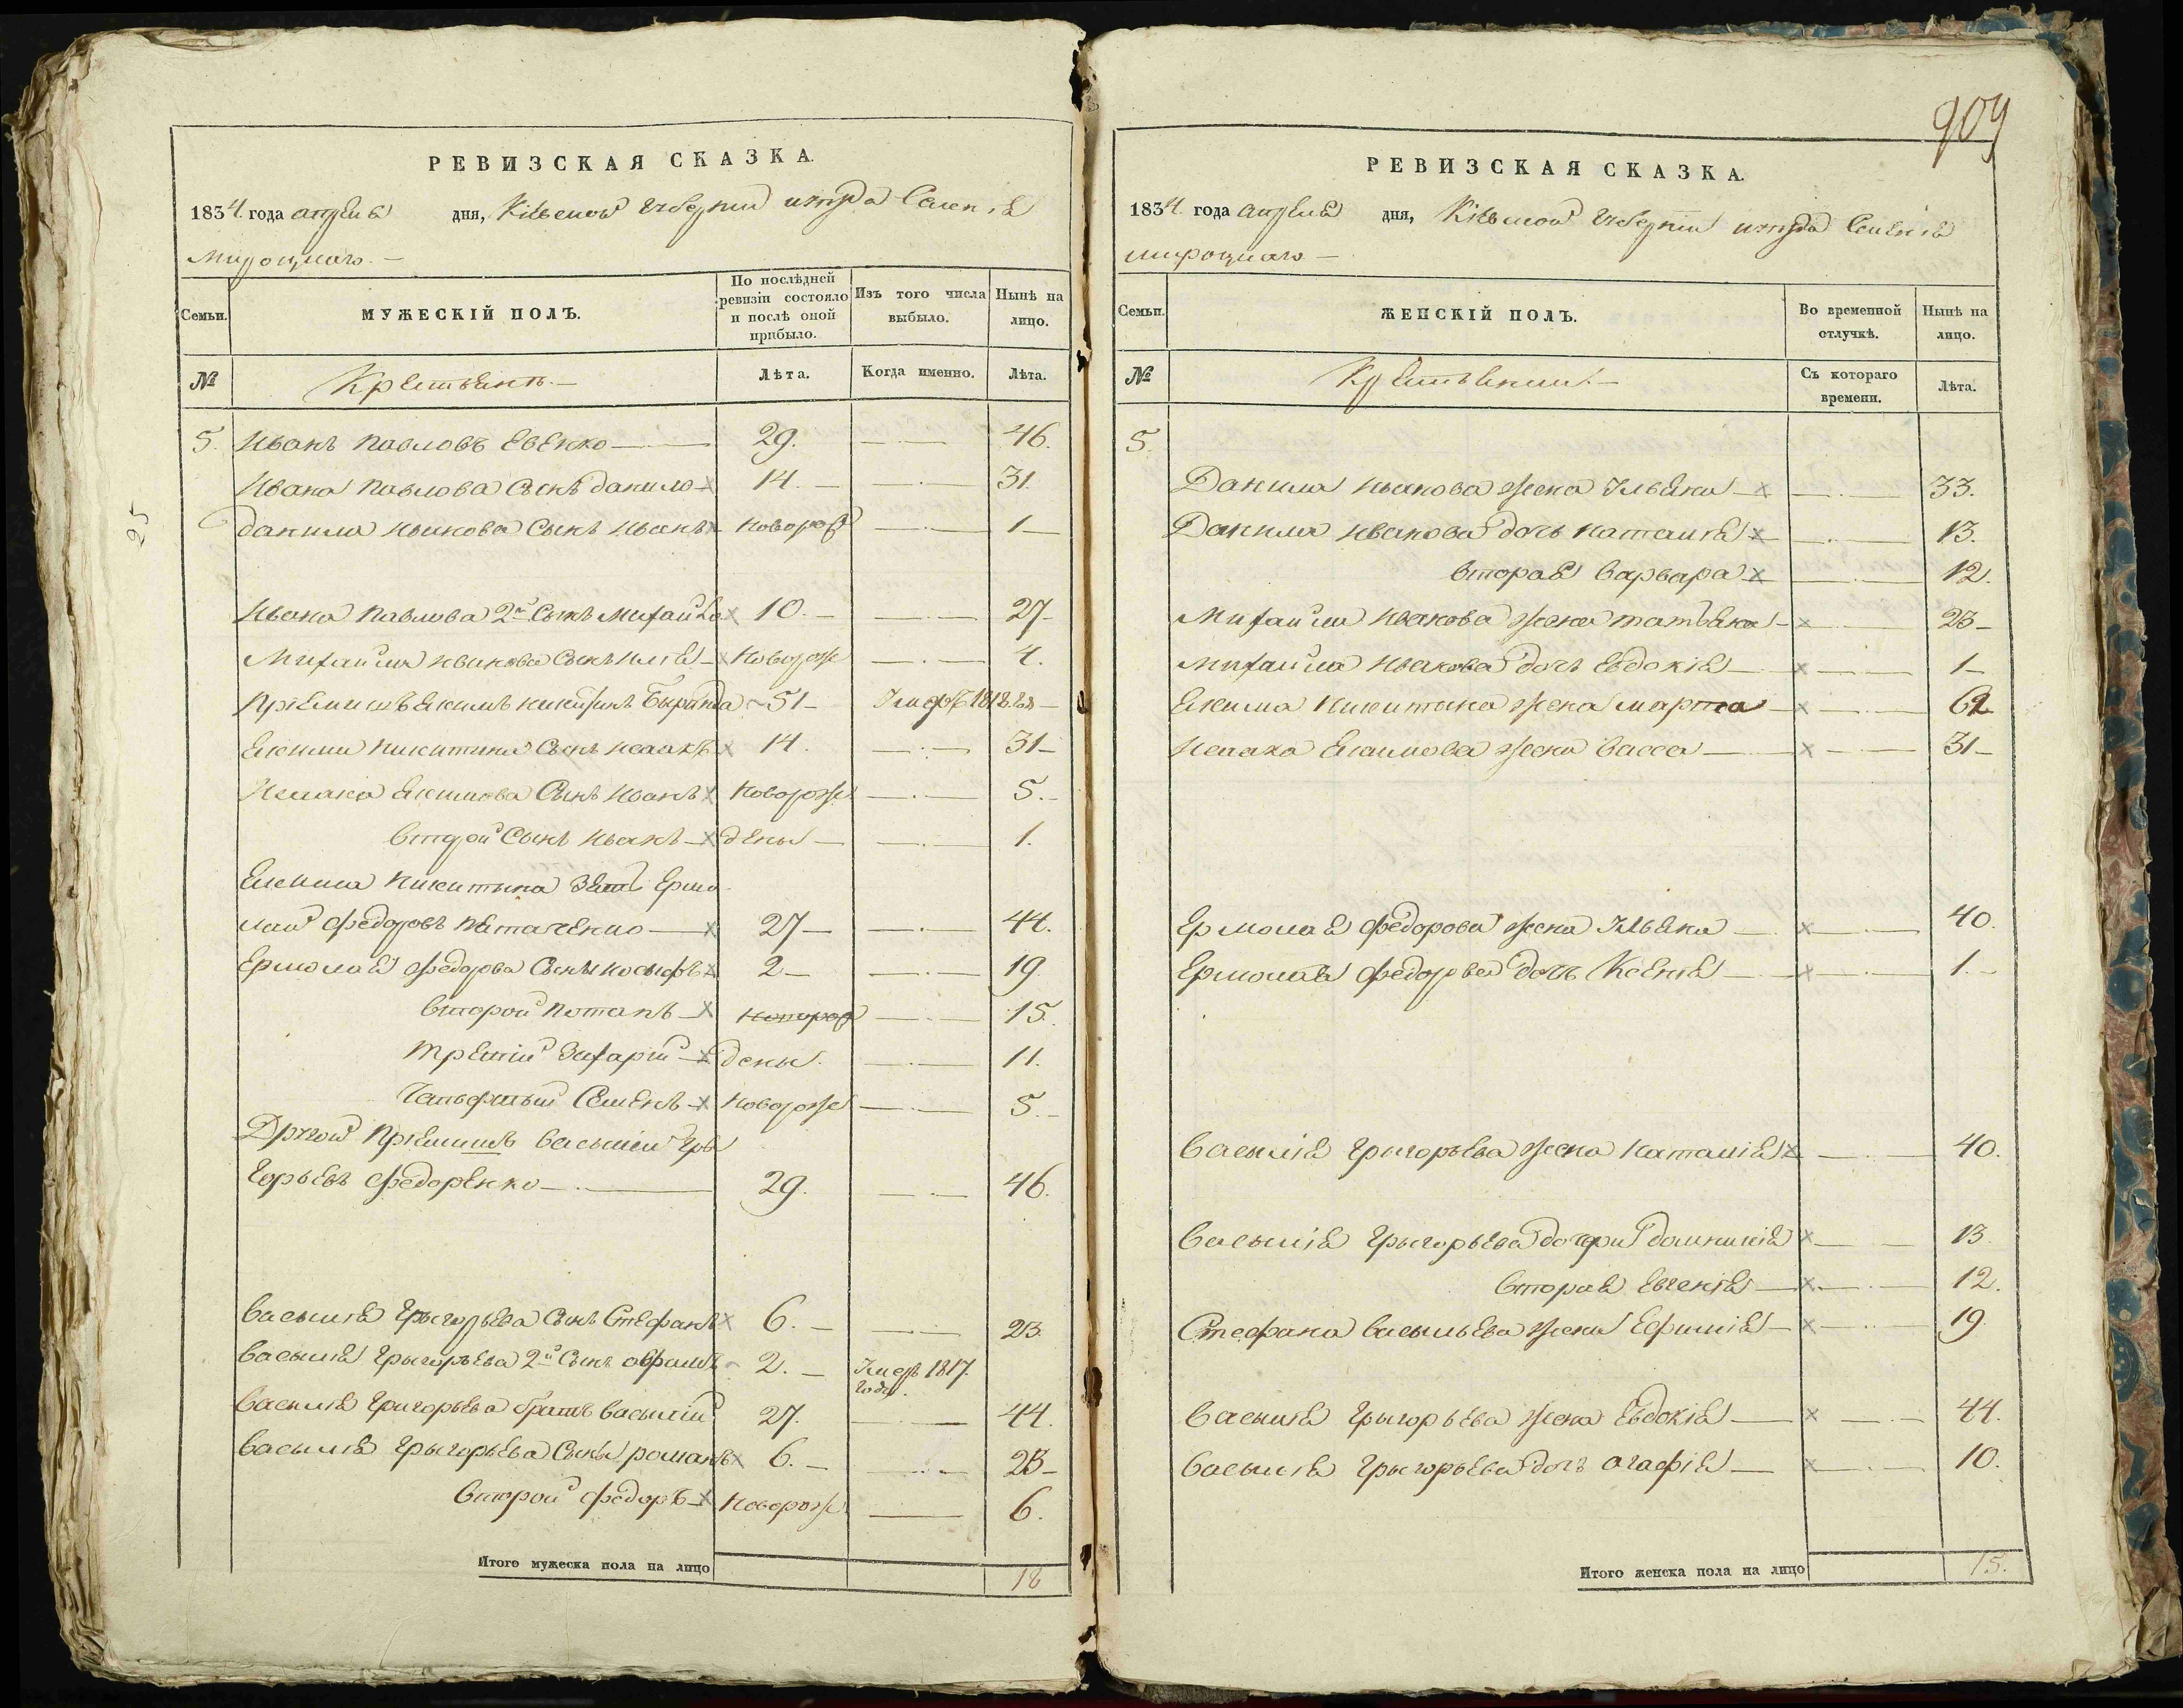 РЕВИЗСКАЯ СКАЗКА.
1834. года апреля дня, Кіевской губерніи и уезда Селенія
Мироцкаго. —
Семьи. МУЖЕСКІЙ ПОЛЪ. По послѣдней ревизіи состояло и послѣ оной прибыло. Изъ того числа выбыло. Нынѣ на лицо.
№ Крестьянъ. — Лѣта. Когда именно. Лѣта.
25
5. Иванъ Павловъ Евенко 29. 46.
Ивана Павлова Сынъ данило 14. 31.
данила Иванова Сынъ Иванъ новорож 1
Ивана Павлова 2й Сынъ Михайло 10. 27
Михайла Иванова Сынъ Илія новорож 4.
Пріемишъ Екимъ Никитинъ 51 Умеръ 1818 го
Екима Никитина Сынъ Исаакъ 14. 31
Исаака Екимова Сынъ Иванъ Новорож 5.
второй Сынъ Иванъ дены 1.
Екима Никитина Зять Ермо
лай Федоровъ 27 44.
Ермолая Федорова Сынъ иосыфъ 2 19
второй Потапъ новорож 15.
третій Захарій дены. 11.
Четвертый Семенъ новорож 5.
Другой Пріемишъ Васылій Гры
горьевъ Федоренко 29. 46.
Васылія Грыгорьева Сынъ Стефанъ 6. 23.
Васылія Грыгорьева 2й Сынъ 2. Умеръ 1817. года.
Васылія Григорьева братъ Васылій 27. 44.
Васылія Грыгорьева Сыны романъ 6. 23
второй Федоръ Новорож 6.
Итого мужеска пола на лицо 18
909
РЕВИЗСКАЯ СКАЗКА.
1834. года апреля дня, Кіевской губерніи и уезда Селенія
мироцкаго —
Семьи. ЖЕНСКІЙ ПОЛЪ. Во временной отлучкѣ. Нынѣ на лицо.
№ Съ котораго времени. Лѣта.
5.
Данила Иванова жена Ульяна 33.
Данила Иванова дочь Наталія 13.
вторая Варвара 12.
Михайла Иванова жена татьяна 23
Михайла Иванова дочь Евдокія 1
Екима Никитина жена марта 62
Исаака Екимова жена Васса 31
Ермолая Федорова жена Ульяна 40.
Ермолая Федорова дочь Ксенія 1.
Васылія Григорьева жена Наталія 40.
Васылія Грыгорьева дочери домникія 13.
вторая Евгенія 12.
Стефана Васыльева жена Ефимія 19
Васылія Грыгорьева жена Евдокія 44.
Васылія Грыгорьева дочь агафія 10.
Итого женска пола на лицо 15.